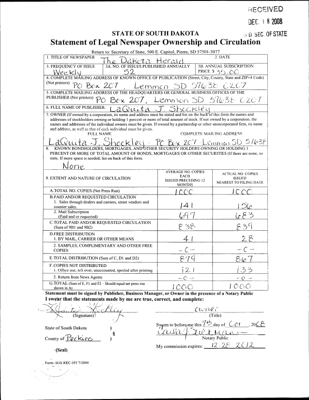 RECEIVED
DEC 18 2008
SD SEC OF STATE
STATE OF SOUTH DAKOTA
Statement of Legal Newspaper Ownership and Circulation
Return to: Secretary of State, 500 E. Capitol, Pierre, SD 57501-5077
1. TITLE OF NEWSPAPER The Dakota Herald 2. DATE
3. FREQUENCY OF ISSUE Weekly 3A. NO. OF ISSUES PUBLISHED ANNUALLY 52 3B. ANNUAL SUBSCRIPTION PRICE $
4. COMPLETE MAILING ADDRESS OF KNOWN OFFICE OF PUBLICATION (Street, City, County, State and ZIP+4 Code)
(Not printers) Po Box 207 Lemmon SD 57638 0207
5. COMPLETE MAILING ADDRESS OF THE HEADQUARTERS OF GENERAL BUSINESS OFFICES OF THE
PUBLISHER (Not printers) Po Box 207, Lemmon SD 57638 0207
6. FULL NAME OF PUBLISHER: LaQuita J. Shockley
7. OWNER (If owned by corporation, its name and address must be stated and
FULL NAME COMPLETE MAILING ADDRESS
LaQuita J. Shockley Po Box 207 Lemmon SD 57638
8. KNOWN BONDHOLDERS, MORTGAGEES, AND OTHER SECURITY HOLDERS OWNING OR HOLDING 1
PERCENT OR MORE OF TOTAL AMOUNT OF BONDS, MORTGAGES OR OTHER SECURITIES (If there are none, so
state. If more space is needed, list on back of this form.
None
9. EXTENT AND NATURE OF CIRCULATION
AVERAGE NO. COPIES EACH ISSUED PRECEDING 12 MONTHS
ACTUAL NO. COPIES ISSUED NEAREST TO FILING DATE
A. TOTAL NO. COPIES (Net Press Run) 1000 1000
B. PAID AND/OR REQUESTED CIRCULATION
1. Sales through dealers and carriers, street vendors and
counter sales. 141 156
2. Mail Subscription
(Paid and or requested) 697 683
C. TOTAL PAID AND/OR REQUESTED CIRCULATION
(Sum of 9B1 and 9B2) 838 839
D. FREE DISTRIBUTION
1. BY MAIL, CARRIER OR OTHER MEANS 41 28
2. SAMPLES, COMPLIMENTARY AND OTHER FREE
COPIES -0- -0-
E. TOTAL DISTRIBUTION (Sum of C, D1 and D2) 879 867
F. COPIES NOT DISTRIBUTED
1. Office use, left over, unaccounted, spoiled after printing 121 133
2. Return from News Agents -0- -0-
G. TOTAL (Sum of E, F1 and F2 - Should equal net press run
shown in A) 1000 1000
Statement must be signed by Publisher, Business Manager, or Owner in the presence of a Notary Public
I swear that the statements made by me are true, correct, and complete:
(Signature) (Title)
State of South Dakota )
County of Perkins )
(Seal)
Notary Public
My commission expires: 12-28-2012